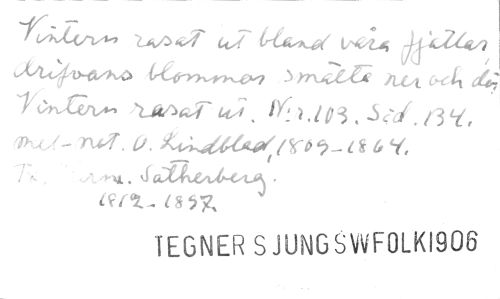 Vintern rasat ut bland våra fjällar,
drifvans blommor smälta ner och dö,
Vintern rasat ut. Nr. 103. Sid. 134.
mel-not. O. Lindblad, 1809-1864.
Sätherberg.
1812-1897.
TEGNER SJUNGSWFOLK1906